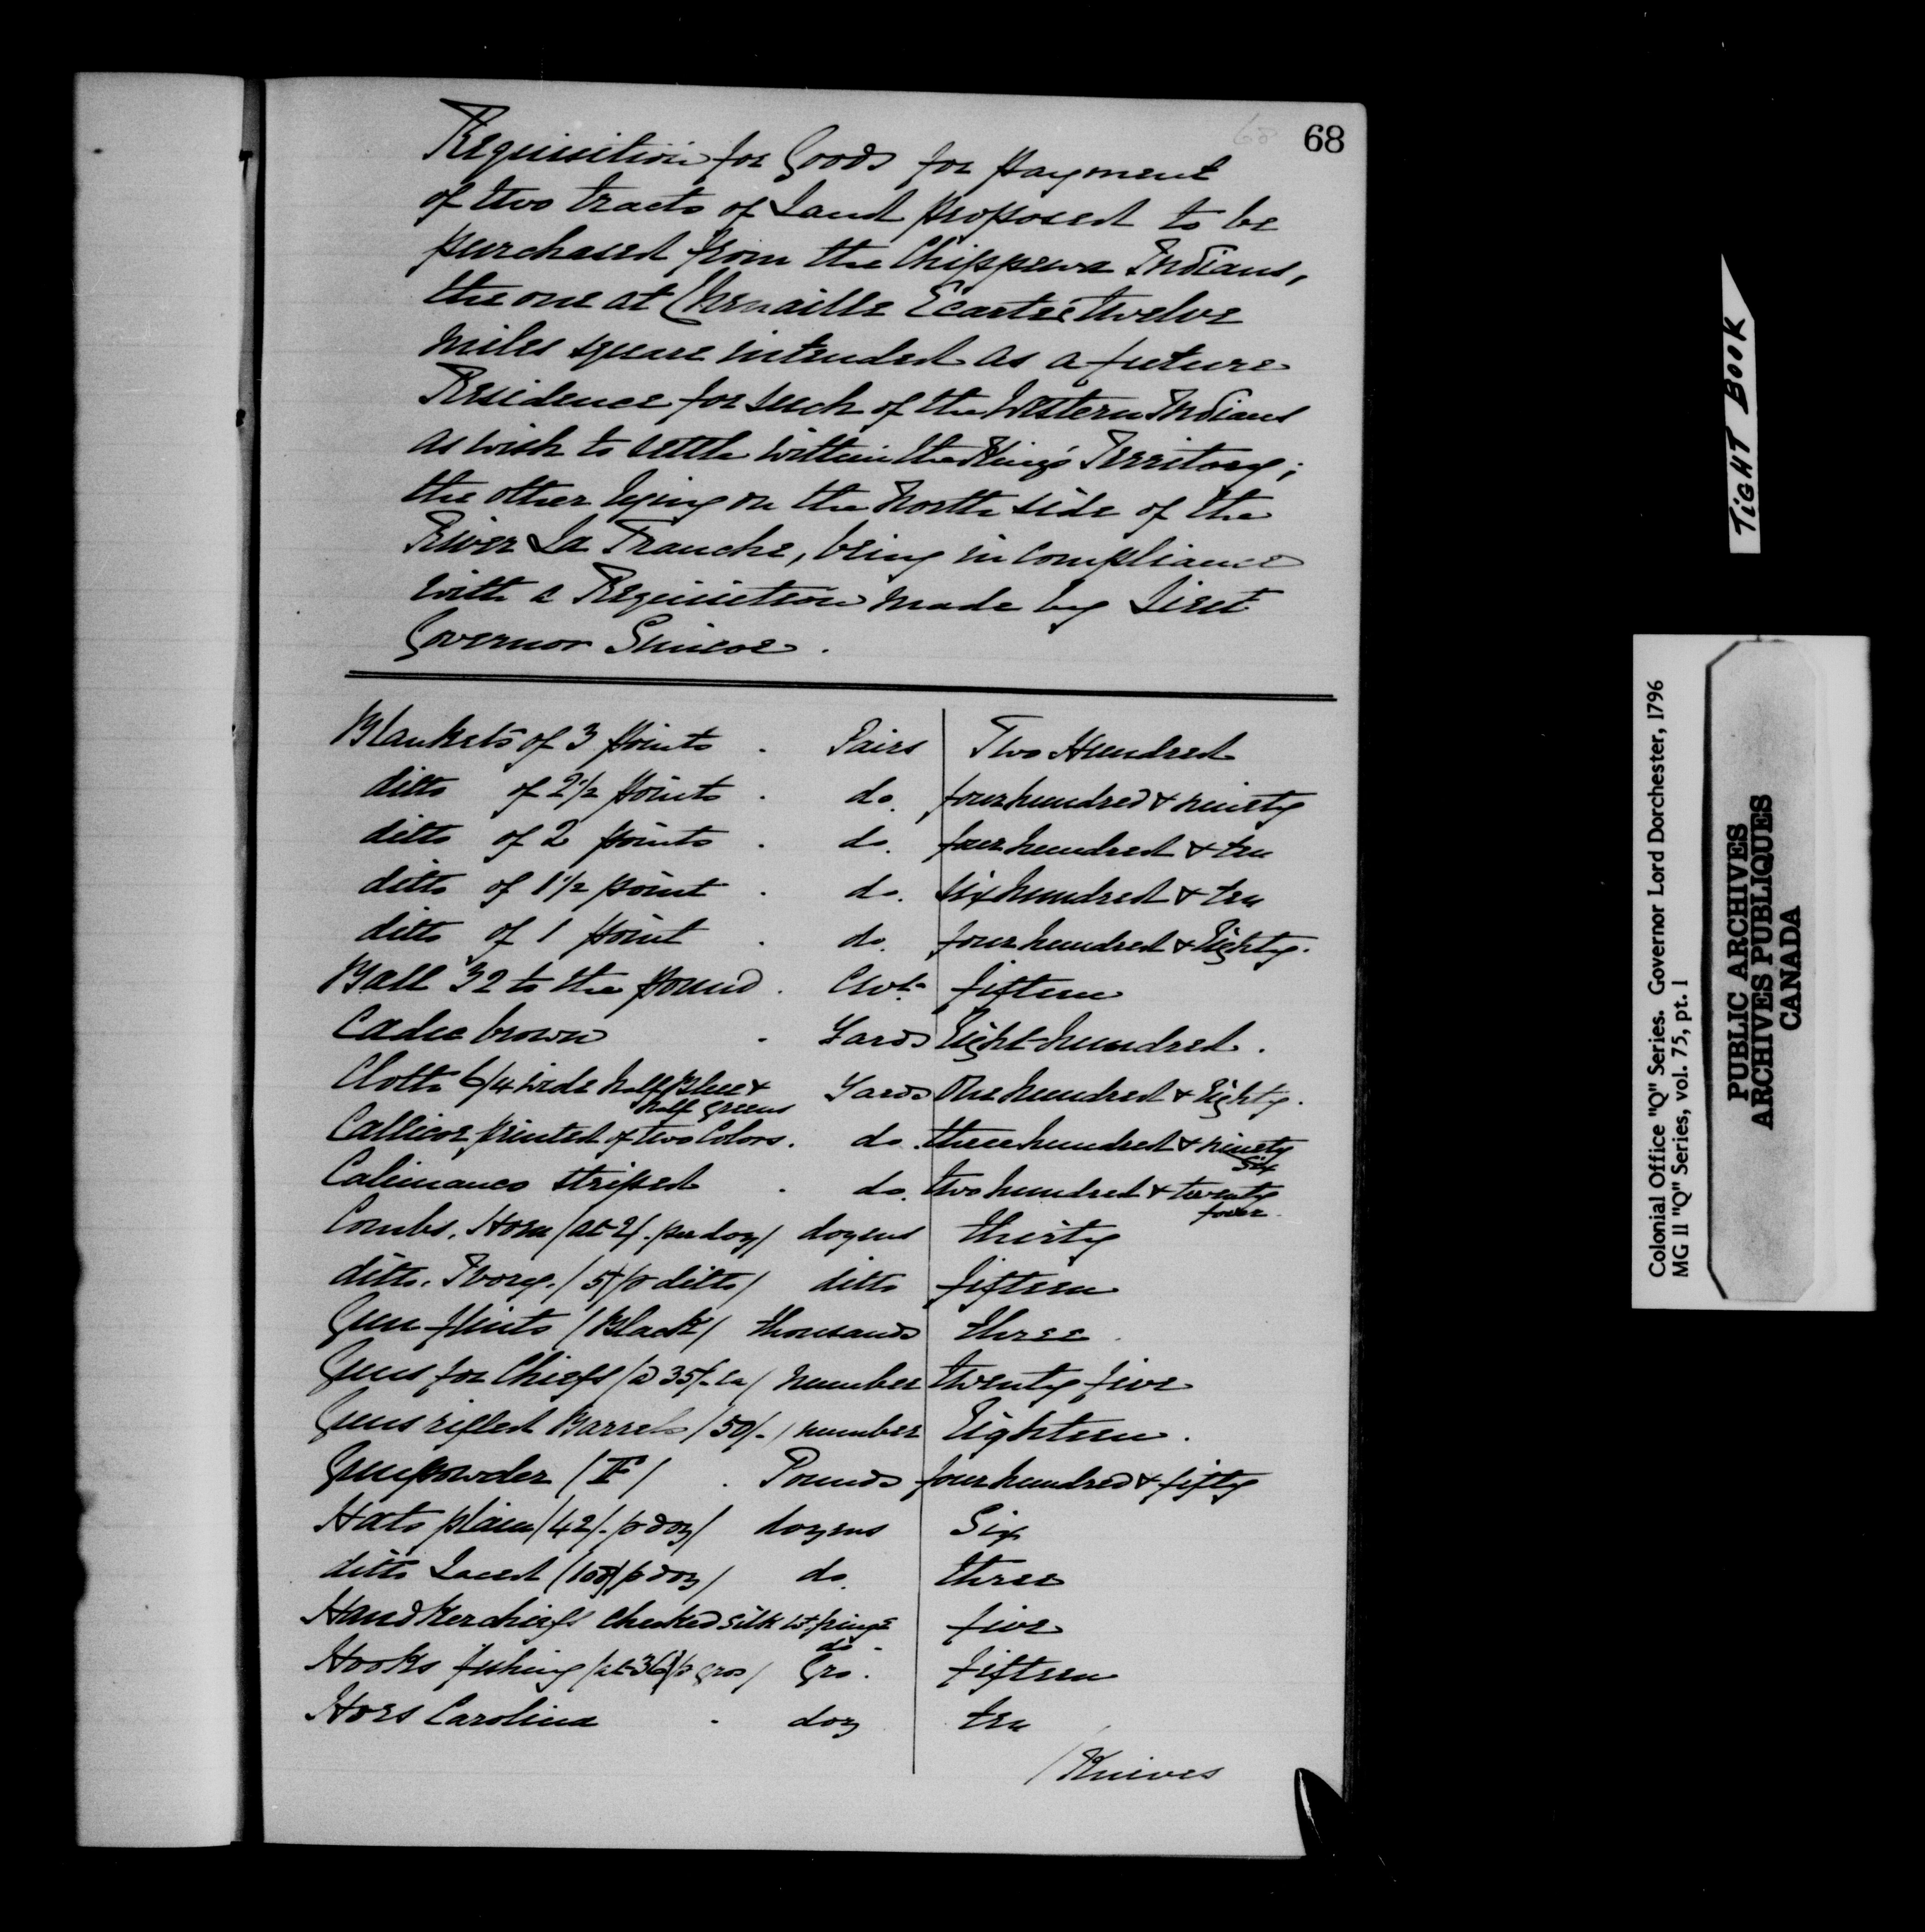 68
68
Requisition for Goods for payment
of two tracts of Land proposed to be
purchased from the Chippewa Indians,
the one at Chenaille Ecarte, twelve
miles square intended as a future
Residence for such of the Western Indians
as wish to settle within the King's Territory;
the other lying on the North side of the
River La Tranche, being in compliance
with a Requisition made by Lieut
Governor Simcoe.
Blankets of 3 points . Pairs Two Hundred
ditto of 2½ points . do. four hundred & ninety
ditto of 2 points . do. four hundred & ten
ditto of 1½ point . do. six hundred & ten
ditto of 1 point . do. four hundred & Eighty.
Ball 32 to the pound . Cwt. fifteen
Cadee brown . Yards Eight hundred.
Cloth 6/4 wide half Blue & half greens Yards One hundred & Eighty.
Callicoe printed of two Colors. do. three hundred & ninety Six
Calimanco striped . do. two hundred & twenty four.
Combs, Horn /at 2/. per doz/ dozens thirty
ditto. Ivory. /5/ p ditto/ ditto fifteen
Gun flints /Black/ thousands three.
Guns for Chiefs /@ 35/- Ea/ number twenty five
Guns rifled Barrels /50/-/ number Eighteen.
Gunpowder /FF/ . Pounds four hundred & fifty
Hats plain /42/- p doz/ dozens Six
ditto Laced /108/ p doz/ do. three
Handkerchiefs checked silk wt. fringe do. five
Hooks fishing /at 36/ p Gros/ Gro. fifteen
Hoes Carolina . doz ten
/Knives
TIGHT BOOK
Colonial Office "Q" Series. Governor Lord Dorchester, 1796
MG 11 "Q" Series, vol. 75, pt. 1
PUBLIC ARCHIVES
ARCHIVES PUBLIQUES
CANADA